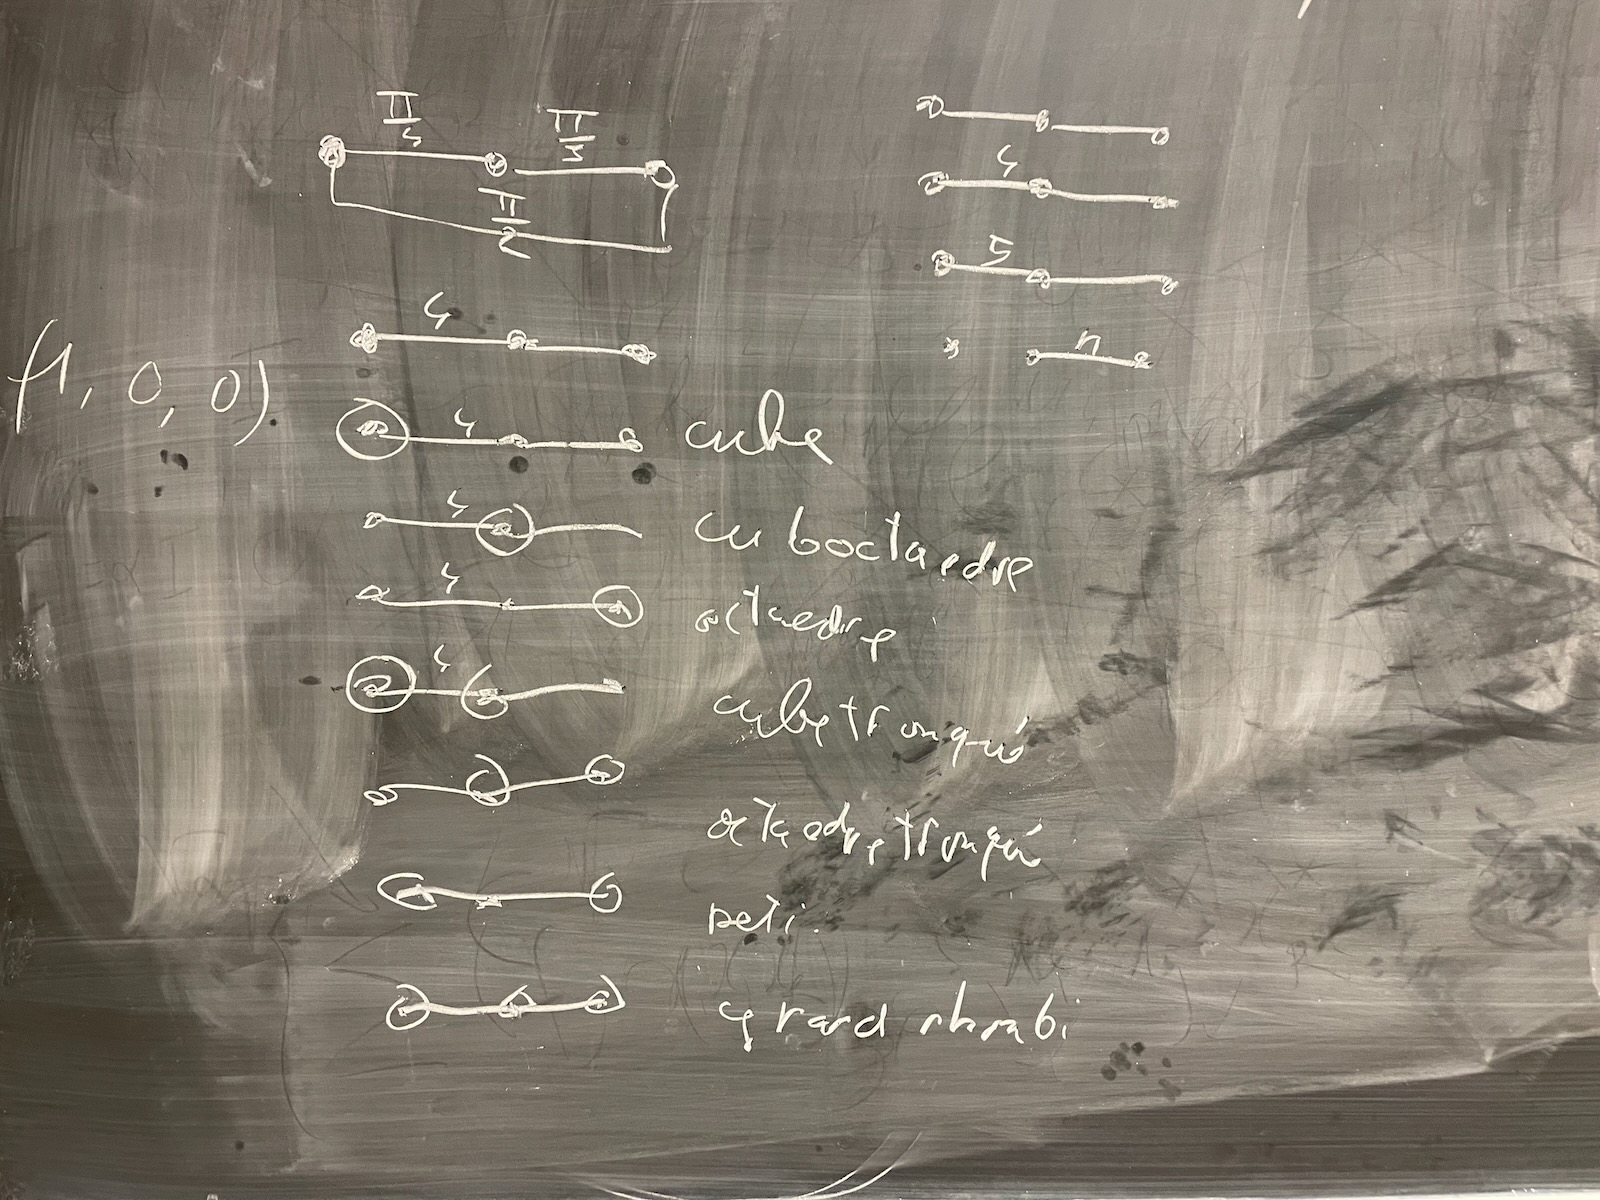 π/4 π/3
π/2
4
5
n
4
(1, 0, 0)
4 cube
4 cuboctaedre
4 octaedre
4 cube tronqué
octaedre tronqué
peti.
grand rhombi